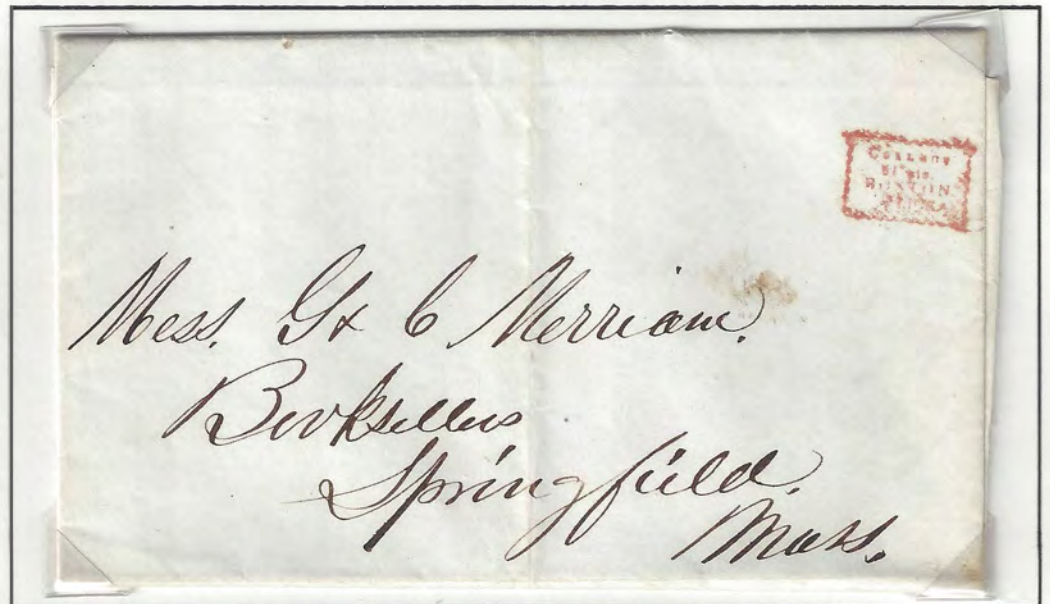 BOSTON
Mess. G & C Merriam.
Booksellers
Springfield.
Mass.